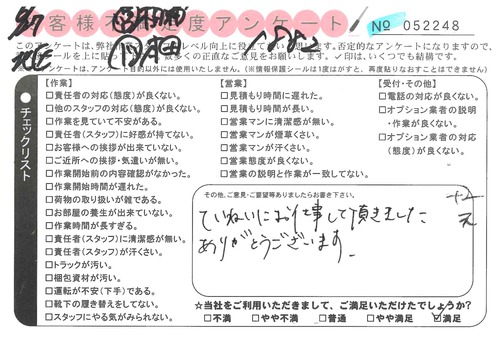 客様不満足度アンケート No 052248
このアンケートは、
否定的なアンケートになりますので、
いくつでも結構です。
アンケートは、アンケート目的以外には使用いたしません。(※情報保護シールは1度はがすと、再度貼りなおすことはできません)
チェックリスト
【作業】
□責任者の対応(態度)が良くない。
□他のスタッフの対応(態度)が良くない。
□作業を見ていて不安がある。
□責任者(スタッフ)に好感が持てない。
□お客様への挨拶が出来ていない。
□ご近所への挨拶・気遣いが無い。
□作業開始前の内容確認がなかった。
□作業開始時間が遅れた。
□荷物の取り扱いが雑である。
□お部屋の養生が出来ていない。
□作業時間が長すぎる。
□責任者(スタッフ)に清潔感が無い。
□責任者(スタッフ)が汗くさい。
□トラックが汚い。
□梱包資材が汚い。
□運転が不安(下手)である。
□靴下の履き替えをしてない。
□スタッフにやる気がみられない。
【営業】
□見積もり時間に遅れた。
□見積もり時間が長い。
□営業マンに清潔感が無い。
□営業マンが煙草くさい。
□営業マンが汗くさい。
□営業態度が良くない。
□営業の説明と作業が一致してない。
【受付・その他】
□電話の対応が良くない。
□オプション業者の説明
・作業が良くない。
□オプション業者の対応
(態度)が良くない。
その他、ご意見・ご要望等ありましたらお書き下さい。
ていねいにお仕事して頂きました
ありがとうございます。
☆当社をご利用いただきまして、ご満足いただけたでしょうか?
□不満 □やや不満 □普通 □やや満足 ☑満足